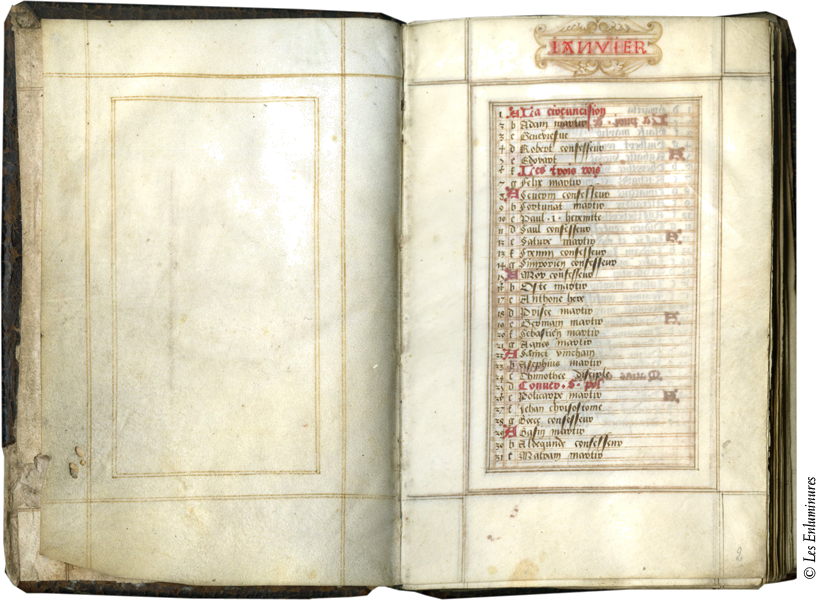 IANVIER
1 A La circuncision
2 b Adam martir
3 c Geneviesve
4 d Robert confesseur
5 e Edouart
6 f Les trois rois
7 g Felix martir
8 A Severin confesseur
9 b Fortunat martir
10 c Paul · 1 · hermite
11 d Saul confesseur
12 e Satire martir
13 f Fremin confesseur
14 g confesseur
15 A Mor confesseur
16 b martir
17 c Anthone
18 d Prisce martir
19 e Germain martir
20 f Sebastien martir
21 g Agnes martir
22 A Sainct vincham
23 b martir
24 c Thimothee disciple
25 d Conver · S · pol
26 e Policarpe martir
27 f Jehan chrisostome
28 g confesseur
29 A Basin martir
30 b Aldegunde confesseur
31 c martir
2
© Les Enluminures